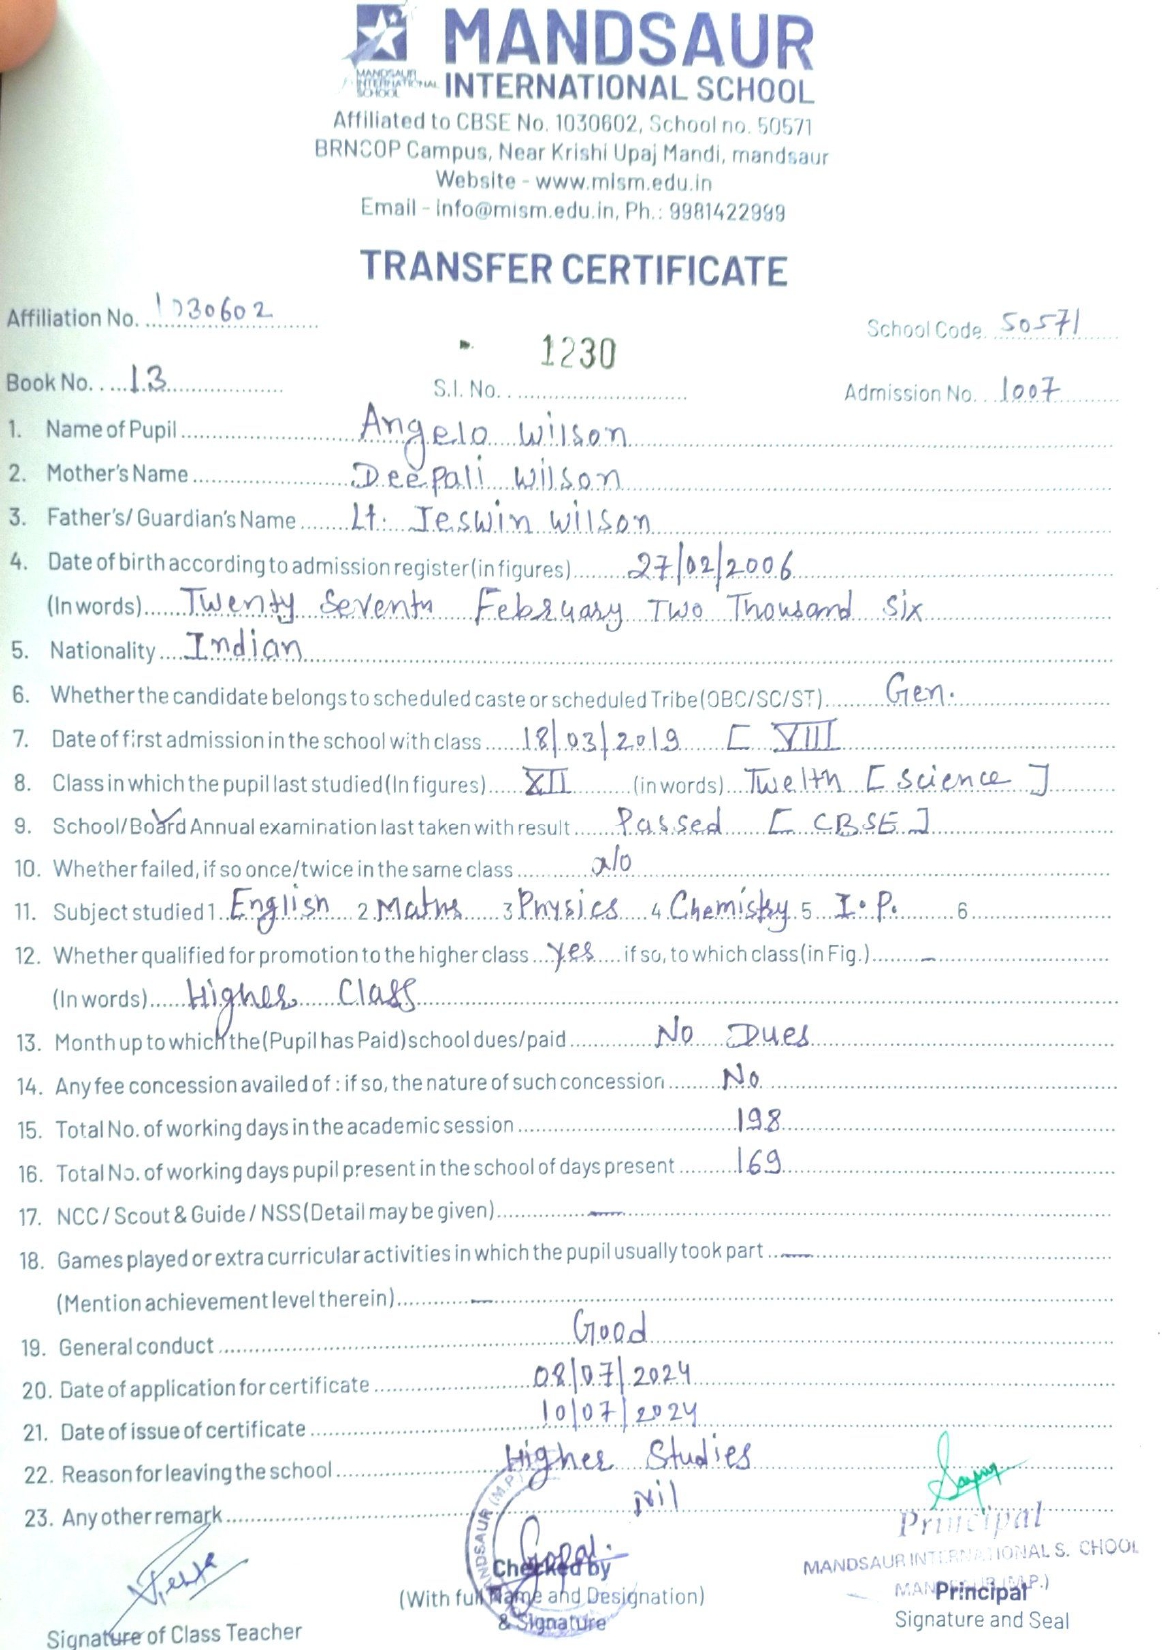 MANDSAUR
MANDSAUR INTERNATIONAL SCHOOL
INTERNATIONAL SCHOOL
Affiliated to CBSE No. 1030602, School no. 50571
BRNCOP Campus, Near Krishi Upaj Mandi, mandsaur
Website - www.mism.edu.in
Email - info@mism.edu.in, Ph.: 9981422999
TRANSFER CERTIFICATE
Affiliation No. 1030602 School Code. 50571
Book No. 13 S.I. No. 1230 Admission No. 1007
1. Name of Pupil Angelo Wilson
2. Mother's Name Deepali Wilson
3. Father's/ Guardian's Name Lt. Jeswin Wilson
4. Date of birth according to admission register(in figures) 27/02/2006
(In words) Twenty Seventh February Two Thousand Six
5. Nationality Indian
6. Whether the candidate belongs to scheduled caste or scheduled Tribe(OBC/SC/ST) Gen.
7. Date of first admission in the school with class 18/03/2019 [ VIII
8. Class in which the pupil last studied(In figures) XII (in words) Twelth [ Science ]
9. School/Board Annual examination last taken with result Passed [ CBSE ]
10. Whether failed, if so once/twice in the same class No
11. Subject studied 1 English 2 Maths 3 Physics 4 Chemistry 5 I.P. 6
12. Whether qualified for promotion to the higher class yes if so, to which class(in Fig.) -
(In words) Higher Class
13. Month up to which the(Pupil has Paid)school dues/paid No Dues
14. Any fee concession availed of : if so, the nature of such concession No
15. Total No. of working days in the academic session 198
16. Total No. of working days pupil present in the school of days present 169
17. NCC / Scout & Guide / NSS(Detail may be given) —
18. Games played or extra curricular activities in which the pupil usually took part —
(Mention achievement level therein) —
19. General conduct Good
20. Date of application for certificate 08/07/2024
21. Date of issue of certificate 10/07/2024
22. Reason for leaving the school Higher Studies
23. Any other remark Nil
MANDSAUR (M.P.)
Principal
MANDSAUR INTERNATIONAL S. CHOOL
MANDSAUR (M.P.)
Checked by
(With full Name and Designation)
& Signature
Principal
Signature and Seal
Signature of Class Teacher